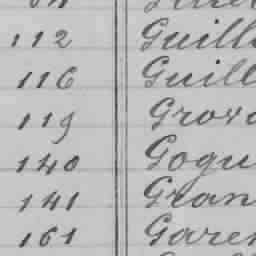 112 Guill
116 Guill
119 Grov
140 Gogu
141 Gran
161 Garen